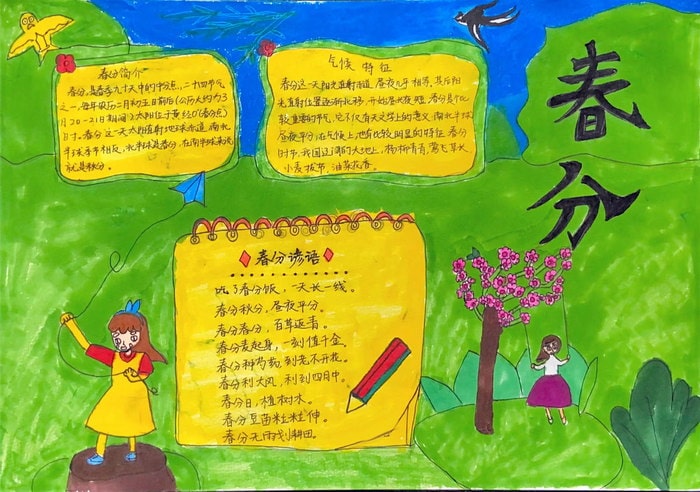 春分
春分简介
春分,是春季九十天的中分点,二十四节气
之一,每年农历二月初五日前后(公历大约为3
月20-21日期间)太阳位于黄经0°(春分点)
时。春分这一天太阳直射地球赤道,南北
半球季节相反,北半球是春分,在南半球来说
就是秋分。
气候特征
春分这一天阳光直射赤道,昼夜几乎相等,其后阳
光直射位置逐渐北移,开始昼长夜短。春分是个比
较重要的节气,它不仅有天文学上的意义:南北半球
昼夜平分;在气候上,也有比较明显的特征,春分
时节,我国辽阔的大地上,杨柳青青,莺飞草长
小麦拔节,油菜花香。
春分谚语
吃了春分饭,一天长一线。
春分秋分,昼夜平分。
春分春分,百草返青。
春分麦起身,一刻值千金。
春分种芍药,到老不开花。
春分刮大风,刮到四月中。
春分日,植树木。
春分豆苗粒粒伸。
春分无雨划耕田。